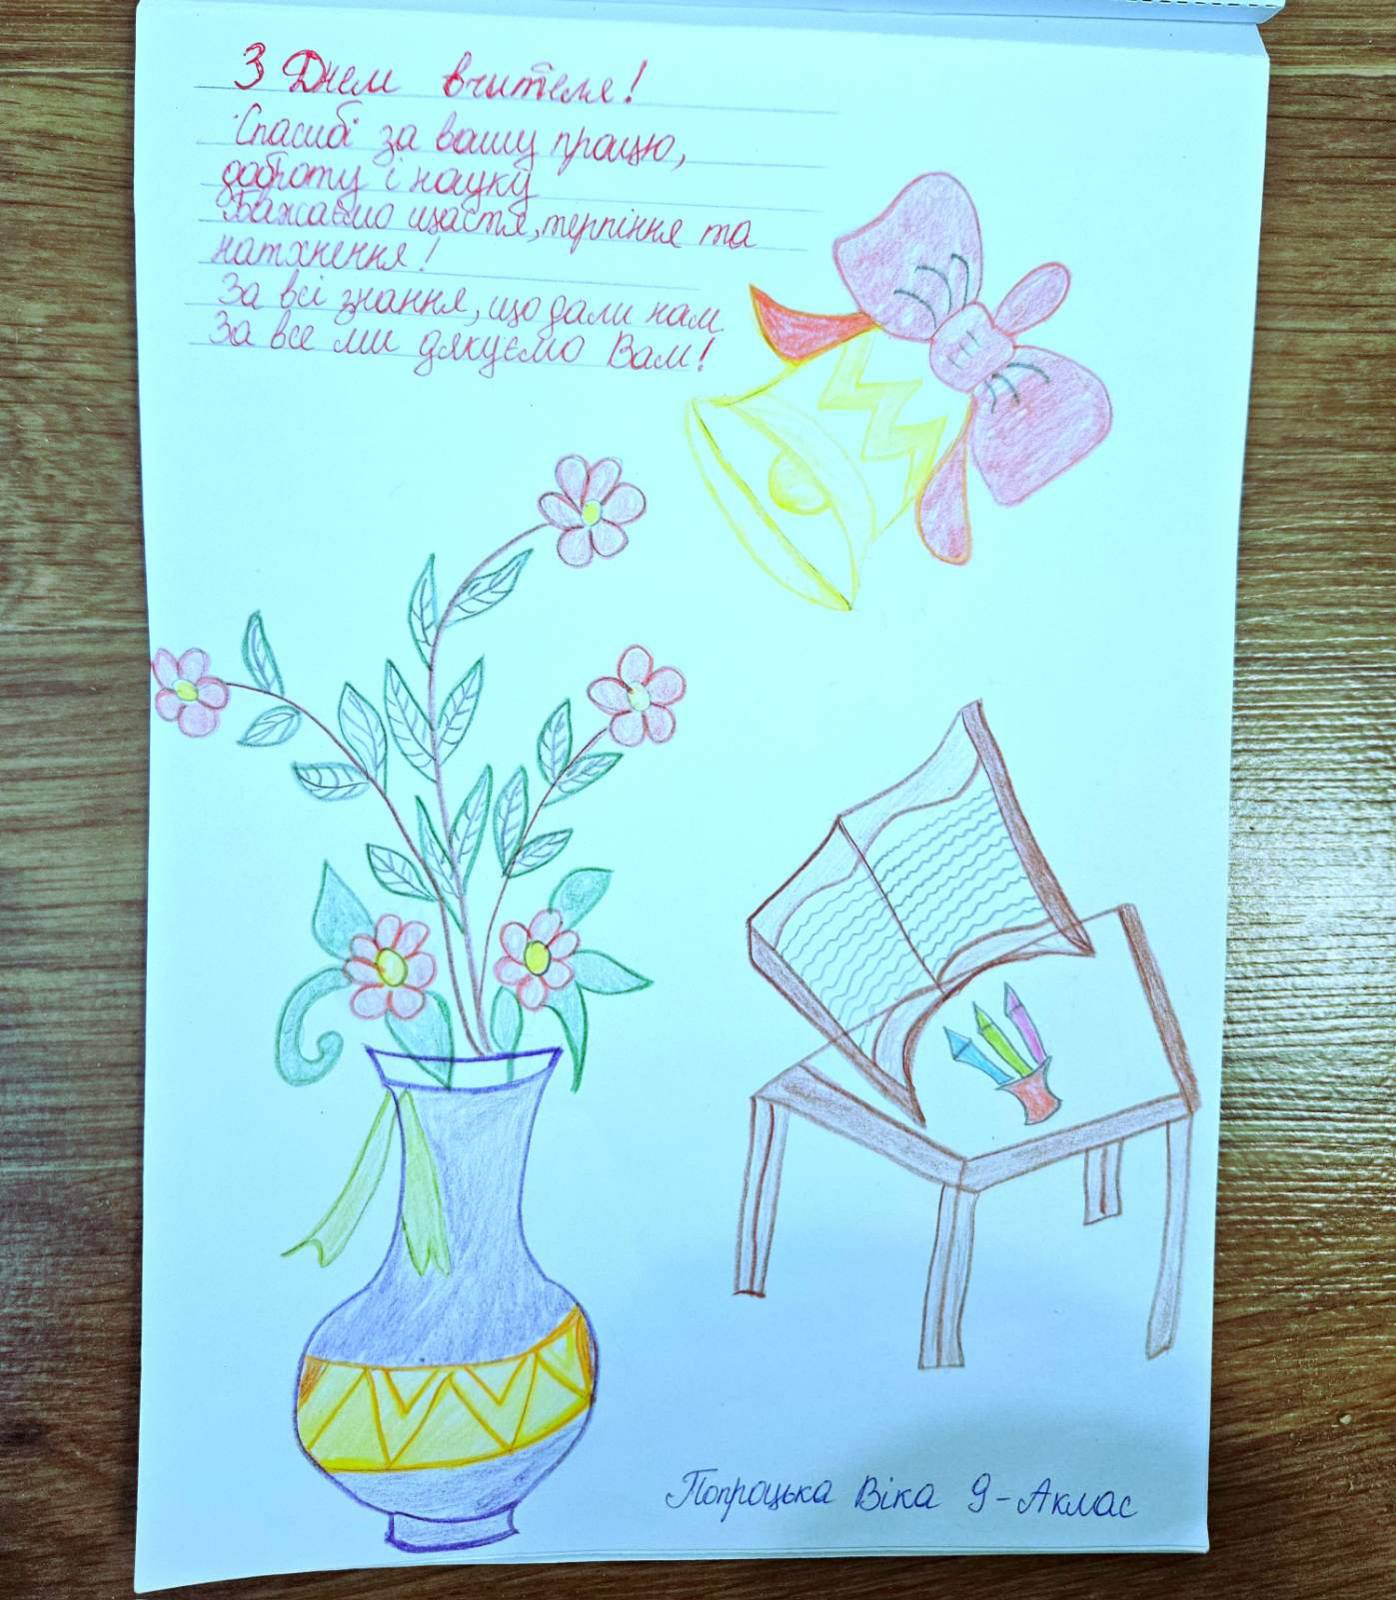 З Днем вчителя!
Спасибі за вашу працю,
доброту і науку
Бажаємо щастя, терпіння та
натхнення!
За всі знання, що дали нам
За все ми дякуємо Вам!
Попроцька Віка 9-А клас